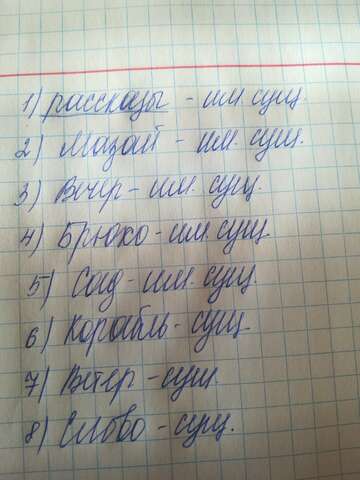 1) рассказы - им. сущ.
2) Мазай - им. сущ.
3) Вечер - им. сущ.
4) Брюхо - им. сущ.
5) Сад - им. сущ.
6) Корабль - сущ.
7) Ветер - сущ.
8) Слово - сущ.